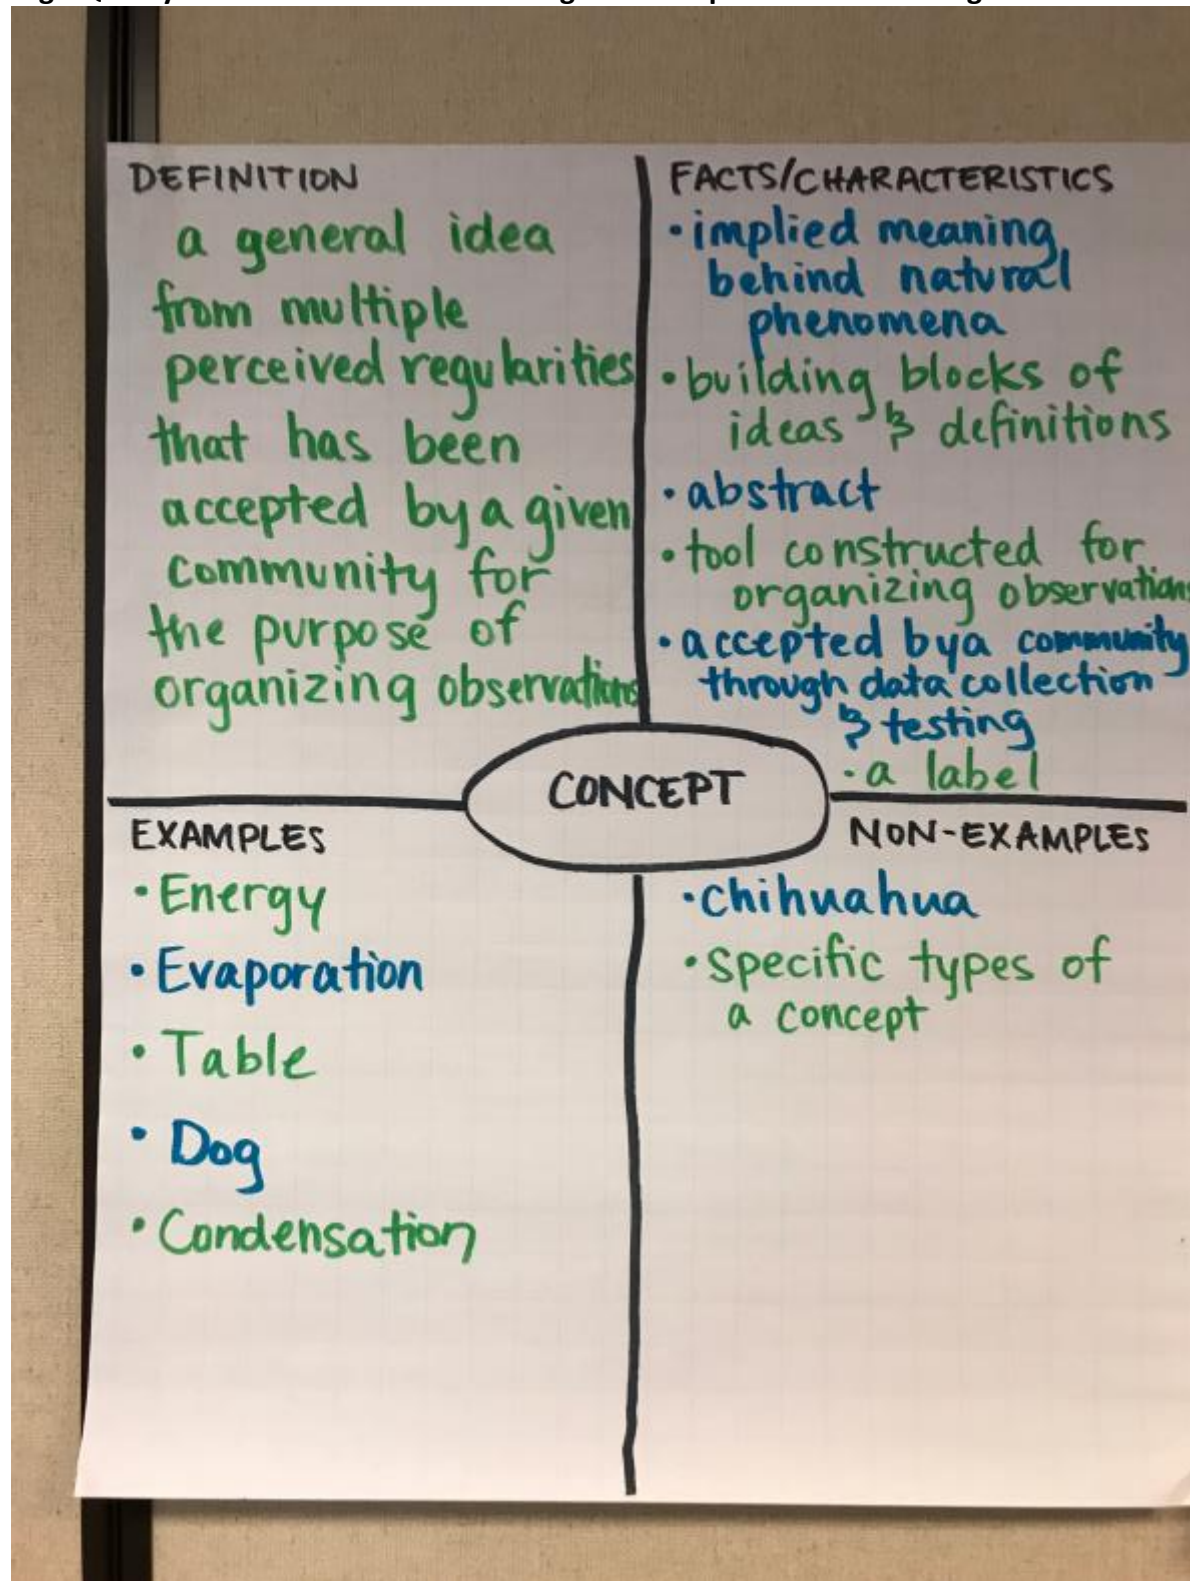 DEFINITION
a general idea
from multiple
perceived regularities
that has been
accepted by a given
community for
the purpose of
organizing observations
FACTS/CHARACTERISTICS
• implied meaning
behind natural
phenomena
• building blocks of
ideas & definitions
• abstract
• tool constructed for
organizing observations
• accepted by a community
through data collection
& testing
• a label
CONCEPT
EXAMPLES
• Energy
• Evaporation
• Table
• Dog
• Condensation
NON-EXAMPLES
• Chihuahua
• Specific types of
a concept